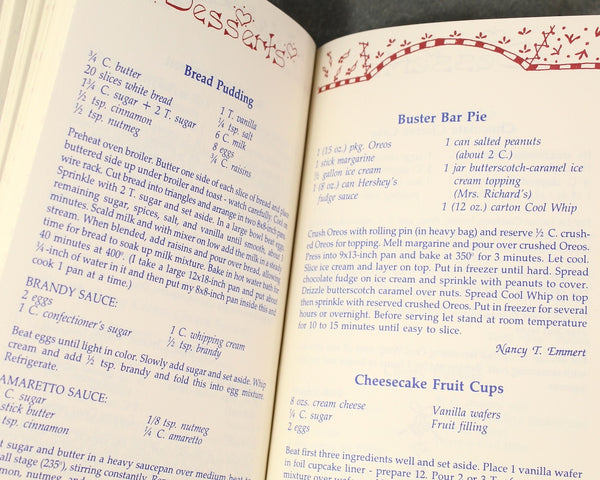 Desserts
Bread Pudding
¾ C. butter
20 slices white bread
1¾ C. sugar + 2 T. sugar
½ tsp. cinnamon
½ tsp. nutmeg
1 T. vanilla
¼ tsp. salt
6 C. milk
8 eggs
¾ C. raisins
Preheat oven broiler. Butter one side of each slice of bread and place
buttered side up under broiler and toast - watch carefully. Cool on
wire rack. Cut bread into triangles and arrange in two 8x8-inch pans.
Sprinkle with 2 T. sugar and set aside. In a large bowl beat eggs,
remaining sugar, spices, salt, and vanilla until smooth, about 3
minutes. Scald milk and with mixer on low add the milk in a steady
stream. When blended, add raisins and pour over bread, allowing
time for bread to soak up milk mixture. Bake in hot water bath for
40 minutes at 400°. (I take a large 12x18-inch pan and put about
¼-inch of water in it and then put my 8x8-inch pan inside this and
cook 1 pan at a time.)
BRANDY SAUCE:
2 eggs
1 C. confectioner's sugar
1 C. whipping cream
½ tsp. brandy
Beat eggs until light in color. Slowly add sugar and set aside. Whip
cream and add ½ tsp. brandy and fold this into egg mixture.
Refrigerate.
AMARETTO SAUCE:
C. sugar
stick butter
tsp. cinnamon
1/8 tsp. nutmeg
¼ C. amaretto
sugar and butter in a heavy saucepan over medium heat
all stage (235°), stirring constantly.
nutmeg, and
Buster Bar Pie
1 (15 oz.) pkg. Oreos
1 stick margarine
½ gallon ice cream
1 (8 oz.) can Hershey's
fudge sauce
1 can salted peanuts
(about 2 C.)
1 jar butterscotch-caramel ice
cream topping
(Mrs. Richard's)
1 (12 oz.) carton Cool Whip
Crush Oreos with rolling pin (in heavy bag) and reserve ½ C. crush-
ed Oreos for topping. Melt margarine and pour over crushed Oreos.
Press into 9x13-inch pan and bake at 350° for 3 minutes. Let cool.
Slice ice cream and layer on top. Put in freezer until hard. Spread
chocolate fudge on ice cream and sprinkle with peanuts to cover.
Drizzle butterscotch caramel over nuts. Spread Cool Whip on top
then sprinkle with reserved crushed Oreos. Put in freezer for several
hours or overnight. Before serving let stand at room temperature
for 10 to 15 minutes until easy to slice.
Nancy T. Emmert
Cheesecake Fruit Cups
8 ozs. cream cheese
¼ C. sugar
2 eggs
Vanilla wafers
Fruit filling
Beat first three ingredients well and set aside. Place 1 vanilla wafer
in foil cupcake liner - prepare 12. Pour 2 or 3 T. of
mixture over